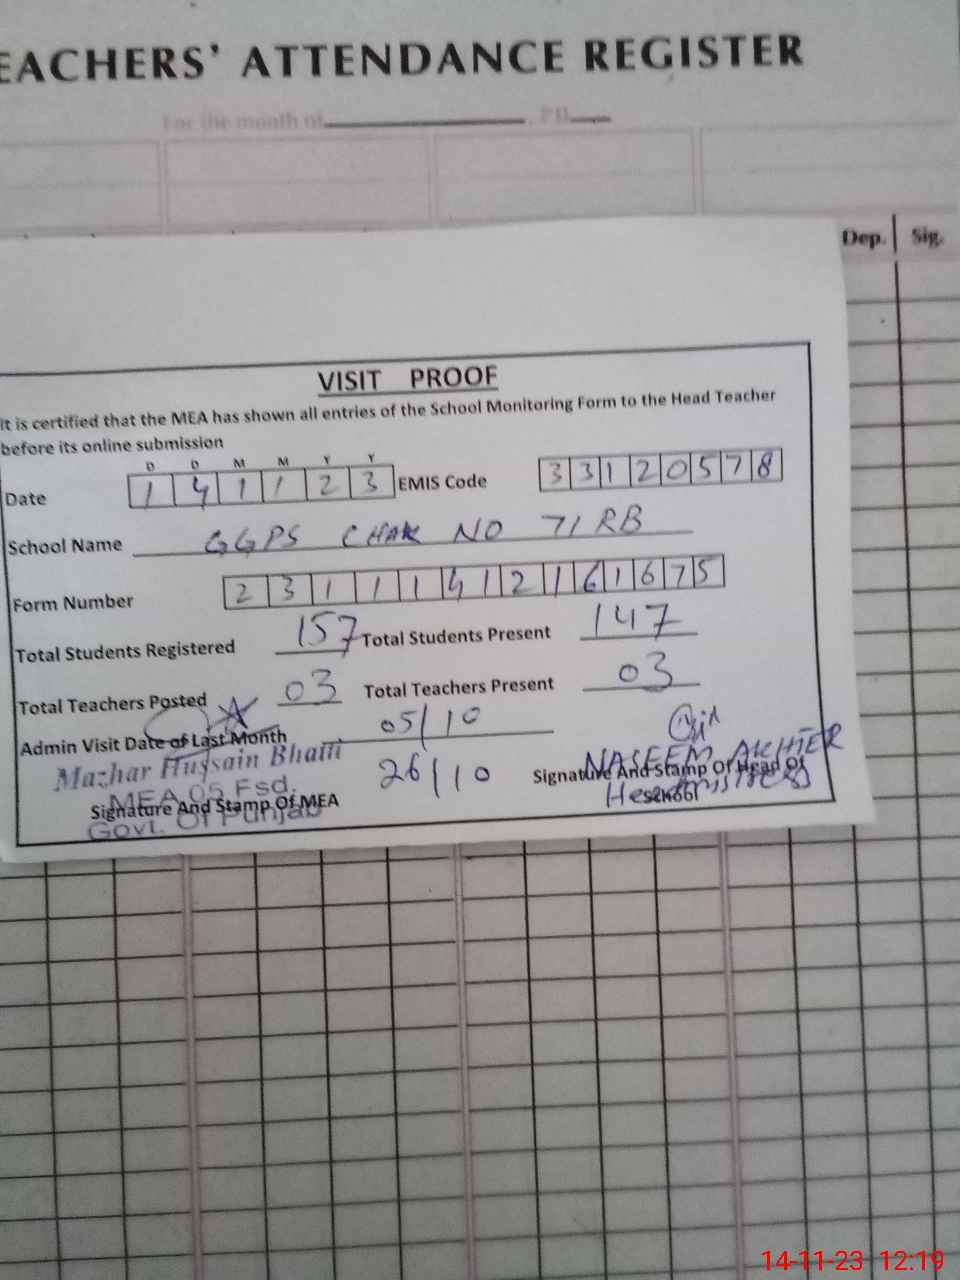 EACHERS' ATTENDANCE REGISTER
For the month of
Dep. Sig.
VISIT PROOF
it is certified that the MEA has shown all entries of the School Monitoring Form to the Head Teacher
before its online submission
D D M M Y Y
Date 1 4 1 1 2 3 EMIS Code 3 3 1 2 0 5 7 8
School Name GGPS CHAK NO 71 RB
Form Number 2 3 1 1 1 4 1 2 1 6 1 6 7 5
Total Students Registered 157 Total Students Present 147
Total Teachers Posted 03 Total Teachers Present 03
Admin Visit Date of Last Month 05/10
26/10
Mazhar Hussain Bhatti
MEA 05 Fsd.
Signature And Stamp Of MEA
Govt. Of Punjab
NASEEM AKHTER
Signature And Stamp Of Head Of
School
14-11-23 12:19